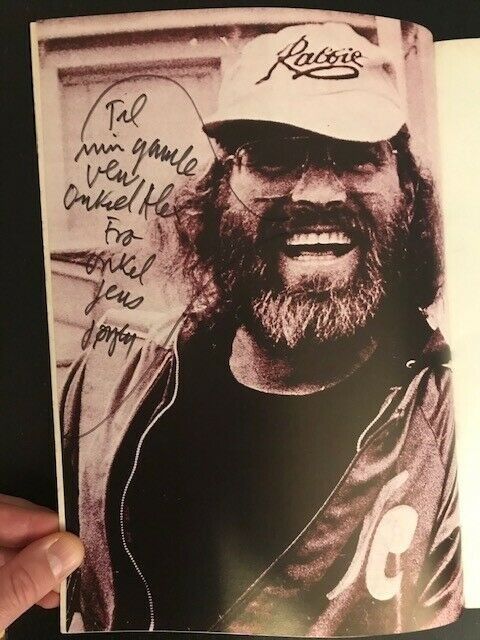 Rabbie
Til
min gamle
ven
onkel
Fra
onkel
Jens